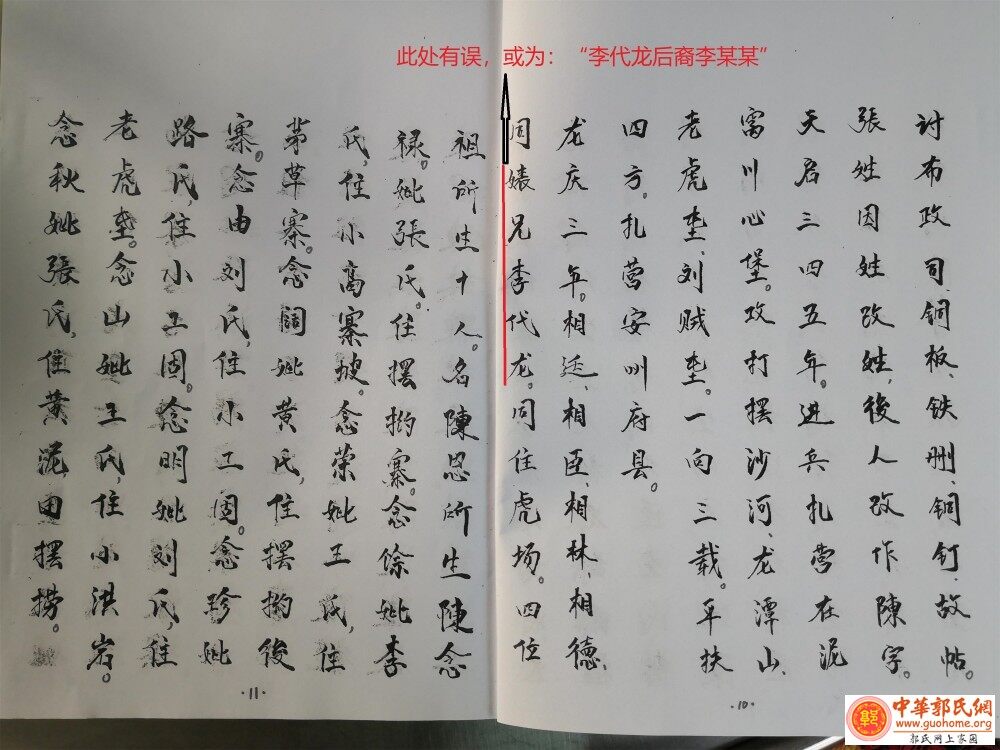 此处有误，或为：“李代龙后裔李某某”
讨布政司铜板、铁册、铜钉、故帖。
張姓因姓改姓，後人改作陳字。
天启三四五年。进兵扎营在泥
窩川心堡。攻打摆沙河、龙潭山、
老虎坉、刘贼坉。一向三载。平扶
四方。扎营安州府县。
龙庆三年。相廷、相臣、相林、相德、
同婊兄李代龙。同住虎场。四位
祖所生十人。名陳恩所生陳念
禄。姚張氏。住摆捞寨。念馀姚李
氏，住小高寨坡。念荣姚王氏，住
茅草寨。念阔姚黄氏，住摆捞後
寨。念由刘氏，住小工固。念珍姚
路氏，住小工固。念明姚刘氏，住
老虎坉。念山姚王氏，住小洪岩。
念秋姚張氏，住黄泥田摆捞。
·11·
·10·
中華郭氏網
www.guohome.org
郭氏网上家园